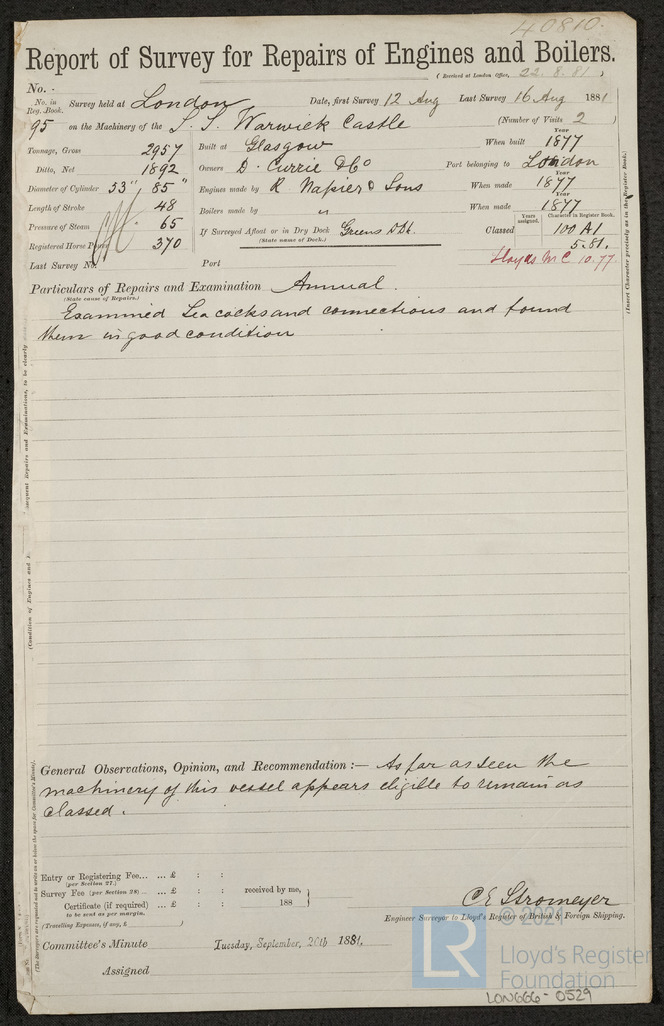 40810.
Report of Survey for Repairs of Engines and Boilers.
(Received at London Office, 22. 8. 81)
No.
No. in Reg. Book. Survey held at London Date, first Survey 12 Aug Last Survey 16 Aug 1881
95 on the Machinery of the S. S. Warwick Castle (Number of Visits 2)
Tonnage, Gross 2957 Built at Glasgow When built Year 1877
Ditto, Net 1892 Owners D. Currie & Co Port belonging to London
Diameter of Cylinder 53" 85" Engines made by R Napier & Sons When made Year 1877
Length of Stroke 48 Boilers made by " When made Year 1877
Pressure of Steam 65 If Surveyed Afloat or in Dry Dock Greens D Dk. Classed Years assigned. Character in Register Book. 100 A1
(State name of Dock.) 5.81.
Registered Horse Power 370
Last Survey No. Port Lloyds MC 10.77
(Insert Character precisely as in the Register Book.)
Particulars of Repairs and Examination Annual.
(State cause of Repairs.)
Examined Sea cocks and connections and found
them in good condition
General Observations, Opinion, and Recommendation :— As far as seen the
machinery of this vessel appears eligible to remain as
classed.
Entry or Registering Fee... ... £ : :
(per Section 27.)
Survey Fee (per Section 28) ... ... £ : : received by me,
Certificate (if required) ... £ : : 188
to be sent as per margin.
(Travelling Expenses, if any, £ )
C E Stromeyer
Engineer Surveyor to Lloyd's Register of British & Foreign Shipping.
Committee's Minute Tuesday, September, 20th 1881.
Assigned
© 2021
LR Lloyd's Register
Foundation
LON666-0529